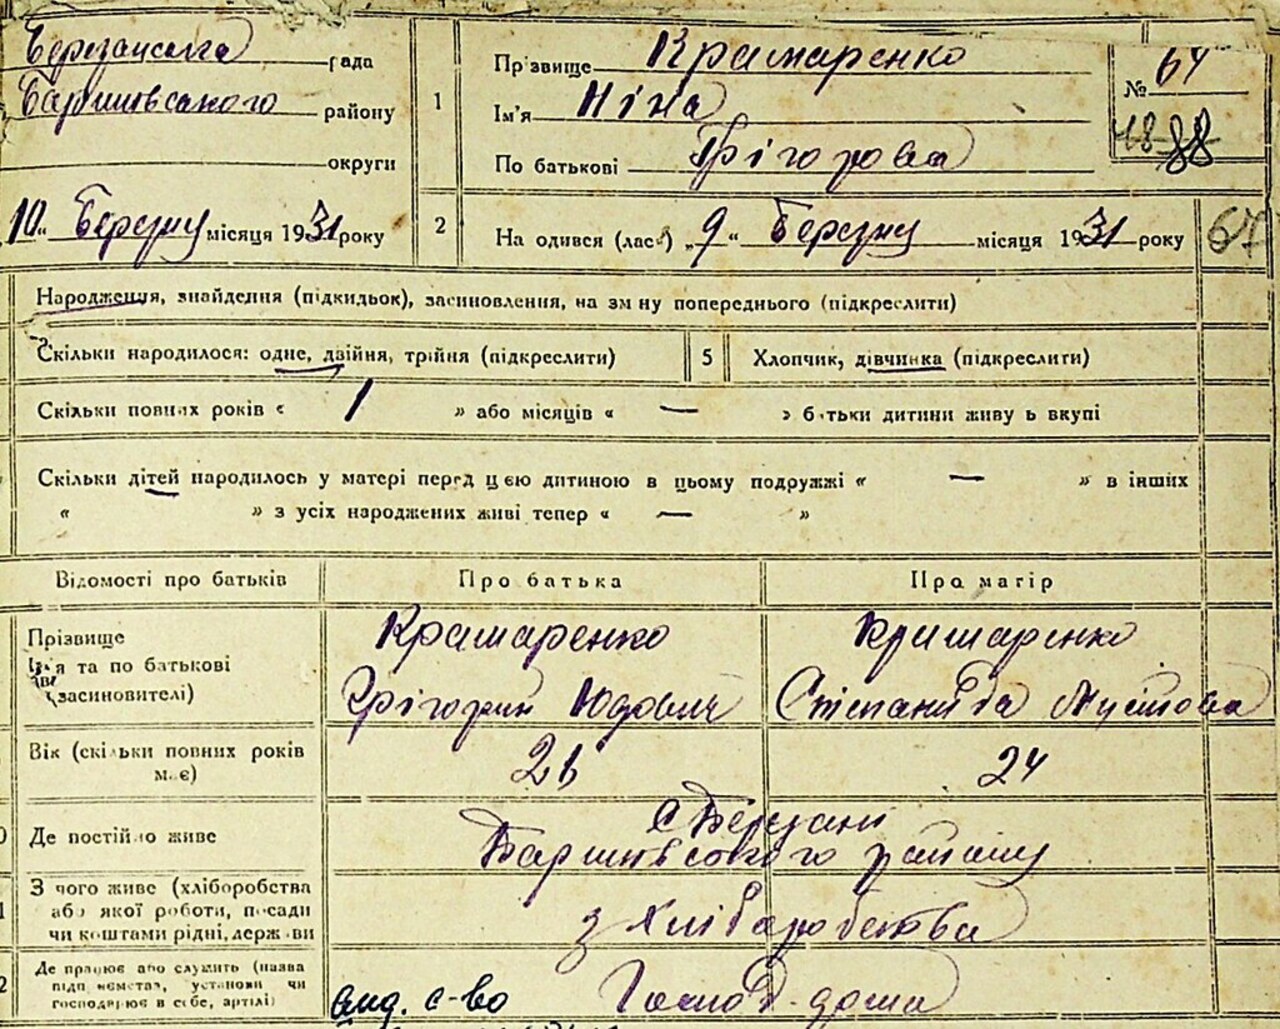 Березанська рада
Баришівського району
округи
10 „ Березня місяця 1931 року
1
Прізвище Крамаренко
Ім'я Ніна
По батькові Грігоровна
№ 64
48 88
2
На одився (лась) „ 9 “ Березня місяця 1931 року
67
Народження, знайдення (підкидьок), засиновлення, на зміну попереднього (підкреслити)
Скільки народилося: одне, двійня, трійня (підкреслити)
5
Хлопчик, дівчинка (підкреслити)
Скільки повних років « 1 » або місяців « — » батьки дитини живуть вкупі
Скільки дітей народилось у матері перед цією дитиною в цьому подружжі « — » в інших
« » з усіх народжених живі тепер « — »
Відомості про батьків
Про батька
Про матір
Прізвище
Ім'я та по батькові
(засиновителі)
Крамаренко
Грігорий Юдович
Крамаренко
Степанида
Вік (скільки повних років має)
24
Де постійно живе
с Березані
Баришівського району
З чого живе (хліборобства
або якої роботи, посади
чи коштами рідні, держави
з Хліборобства
Де працює або служить (назва
підприємства, установи чи
господарює в себе, артілі)
инд. с-во
Господ. дома